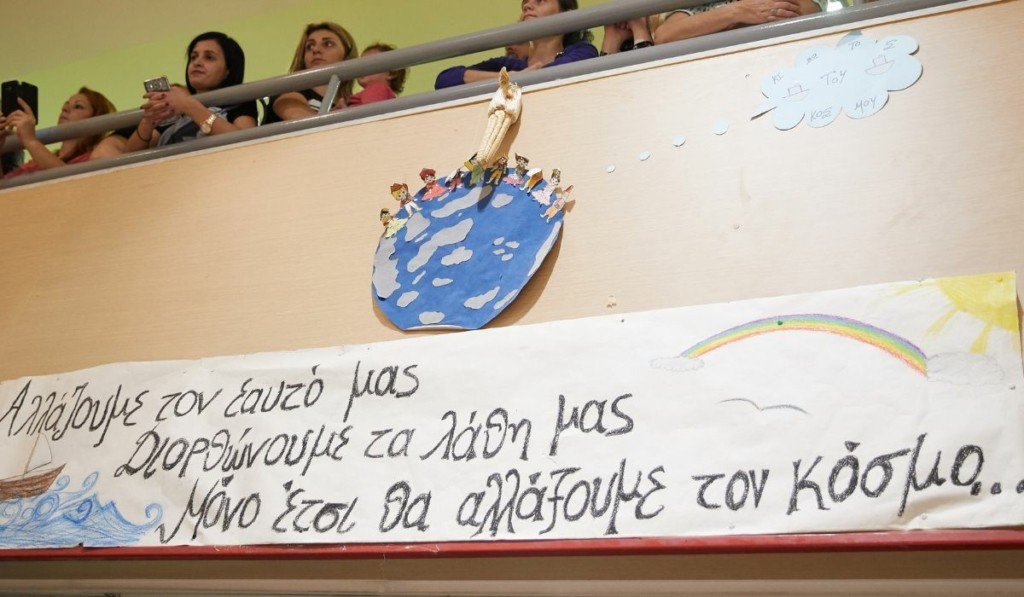 ΤΟΥ
ΚΟΣΜΟΥ
Αλλάζουμε τον εαυτό μας
Διορθώνουμε τα λάθη μας
Μόνο έτσι θα αλλάξουμε τον κόσμο...